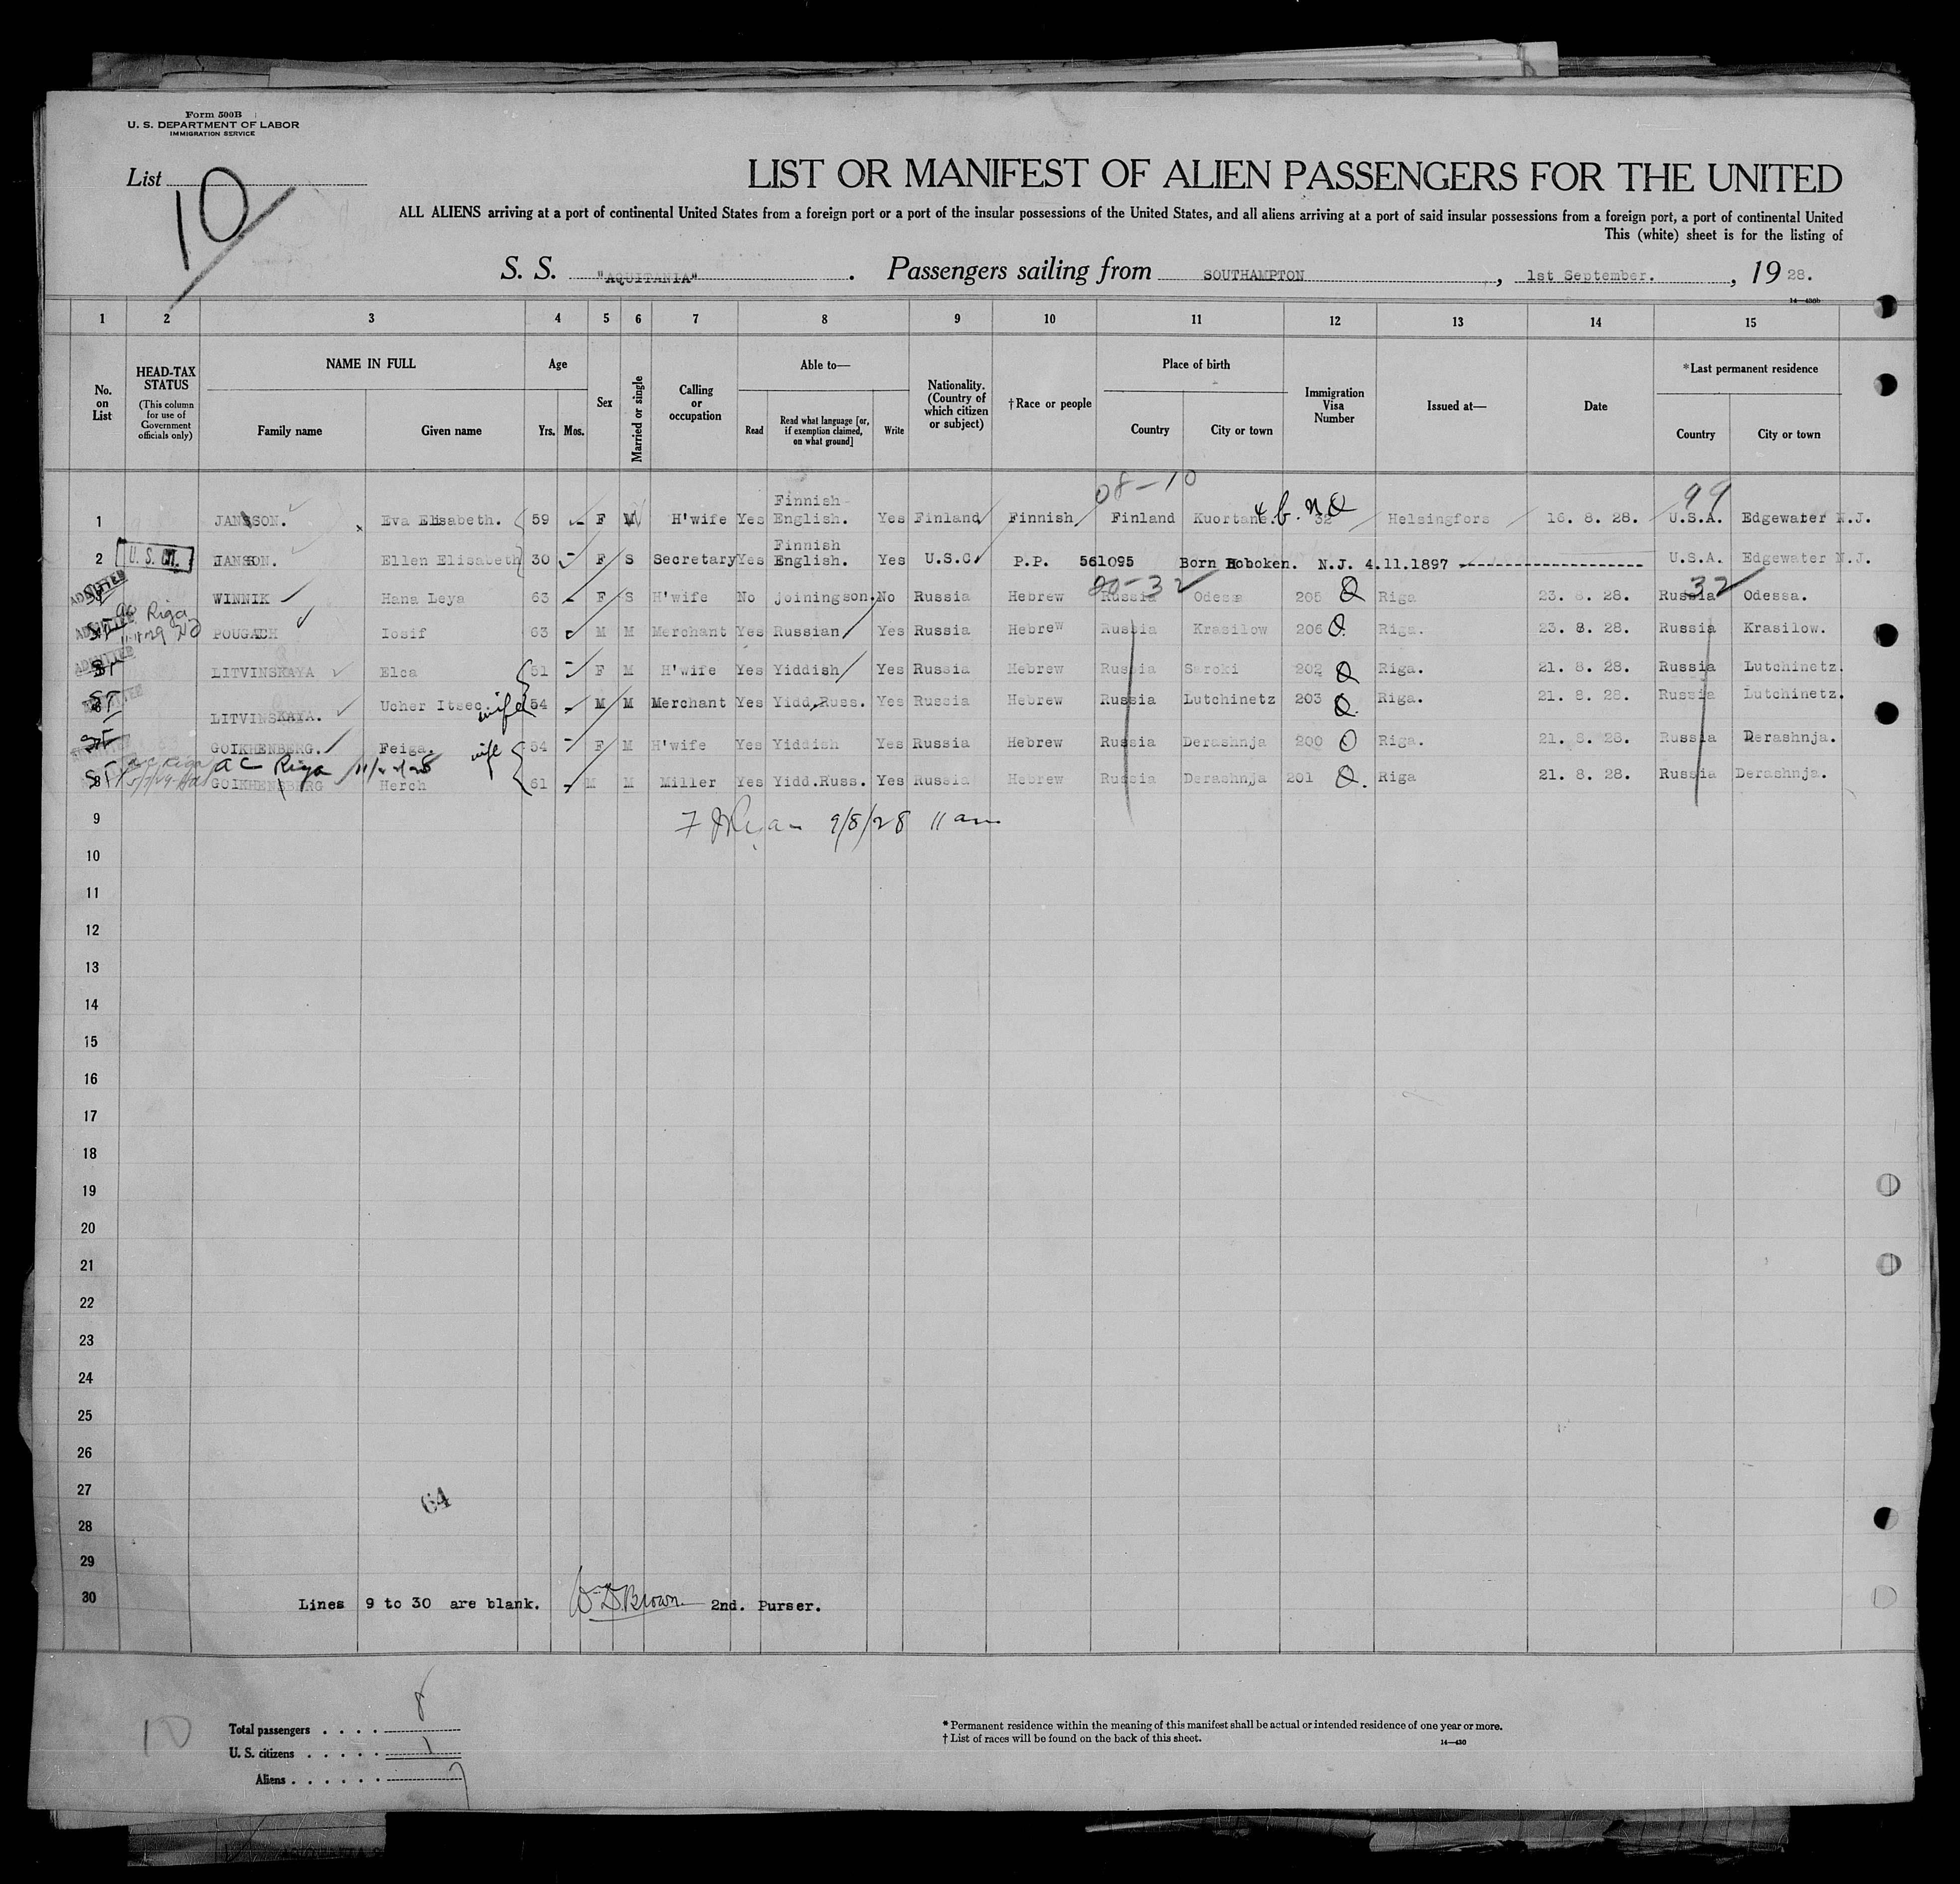 Form 500B
U. S. DEPARTMENT OF LABOR
IMMIGRATION SERVICE
List 10
LIST OR MANIFEST OF ALIEN PASSENGERS FOR THE UNITED
ALL ALIENS arriving at a port of continental United States from a foreign port or a port of the insular possessions of the United States, and all aliens arriving at a port of said insular possessions from a foreign port, a port of continental United
This (white) sheet is for the listing of
S. S. "AQUITANIA". Passengers sailing from SOUTHAMPTON, 1st September., 1928.
14—430b
1 2 3 4 5 6 7 8 9 10 11 12 13 14 15
No. on List
HEAD-TAX STATUS
(This column for use of Government officials only)
NAME IN FULL
Family name Given name
Age
Yrs. Mos.
Sex
Married or single
Calling or occupation
Able to—
Read
Read what language [or, if exemption claimed, on what ground]
Write
Nationality. (Country of which citizen or subject)
†Race or people
Place of birth
Country City or town
Immigration Visa Number
Issued at—
Date
*Last permanent residence
Country City or town
08-10 99
1 JANSSON. Eva Elisabeth. 59 F M H'wife Yes Finnish English. Yes Finland Finnish Finland Kuortane. 32 Helsingfors 16. 8. 28. U.S.A. Edgewater N.J.
2 U.S. JANSSON. Ellen Elisabeth 30 F S Secretary Yes Finnish English. Yes U.S.C. P.P. 561095 Born Hoboken. N.J. 4.11.1897 U.S.A. Edgewater N.J.
20-32 32
ADMITTED WINNIK Hana Leya 63 F S H'wife No joiningson. No Russia Hebrew Russia Odessa 205 Riga 23. 8. 28. Russia Odessa.
ADMITTED Riga POUGACH Iosif 63 M M Merchant Yes Russian Yes Russia Hebrew Russia Krasilow 206 Riga. 23. 8. 28. Russia Krasilow.
ADMITTED LITVINSKAYA Elca 51 F M H'wife Yes Yiddish Yes Russia Hebrew Russia Soroki 202 Riga. 21. 8. 28. Russia Lutchinetz.
LITVINSKAYA. Ucher Itsec. wife 54 M M Merchant Yes Yidd.Russ. Yes Russia Hebrew Russia Lutchinetz 203 Riga. 21. 8. 28. Russia Lutchinetz.
GOIKHENBERG. Feiga. wife 54 F M H'wife Yes Yiddish Yes Russia Hebrew Russia Derashnja 200 Riga. 21. 8. 28. Russia Derashnja.
ac Riga
8 GOIKHENBERG Herch 61 M M Miller Yes Yidd.Russ. Yes Russia Hebrew Russia Derashnja 201 Riga 21. 8. 28. Russia Derashnja.
9 9/8/28 11 am
10
11
12
13
14
15
16
17
18
19
20
21
22
23
24
25
26
27
64
28
29
30 Lines 9 to 30 are blank. W D Brown 2nd. Purser.
10
Total passengers . . . . 8
U. S. citizens . . . . . 1
Aliens . . . . . . 7
* Permanent residence within the meaning of this manifest shall be actual or intended residence of one year or more.
† List of races will be found on the back of this sheet.
14—430